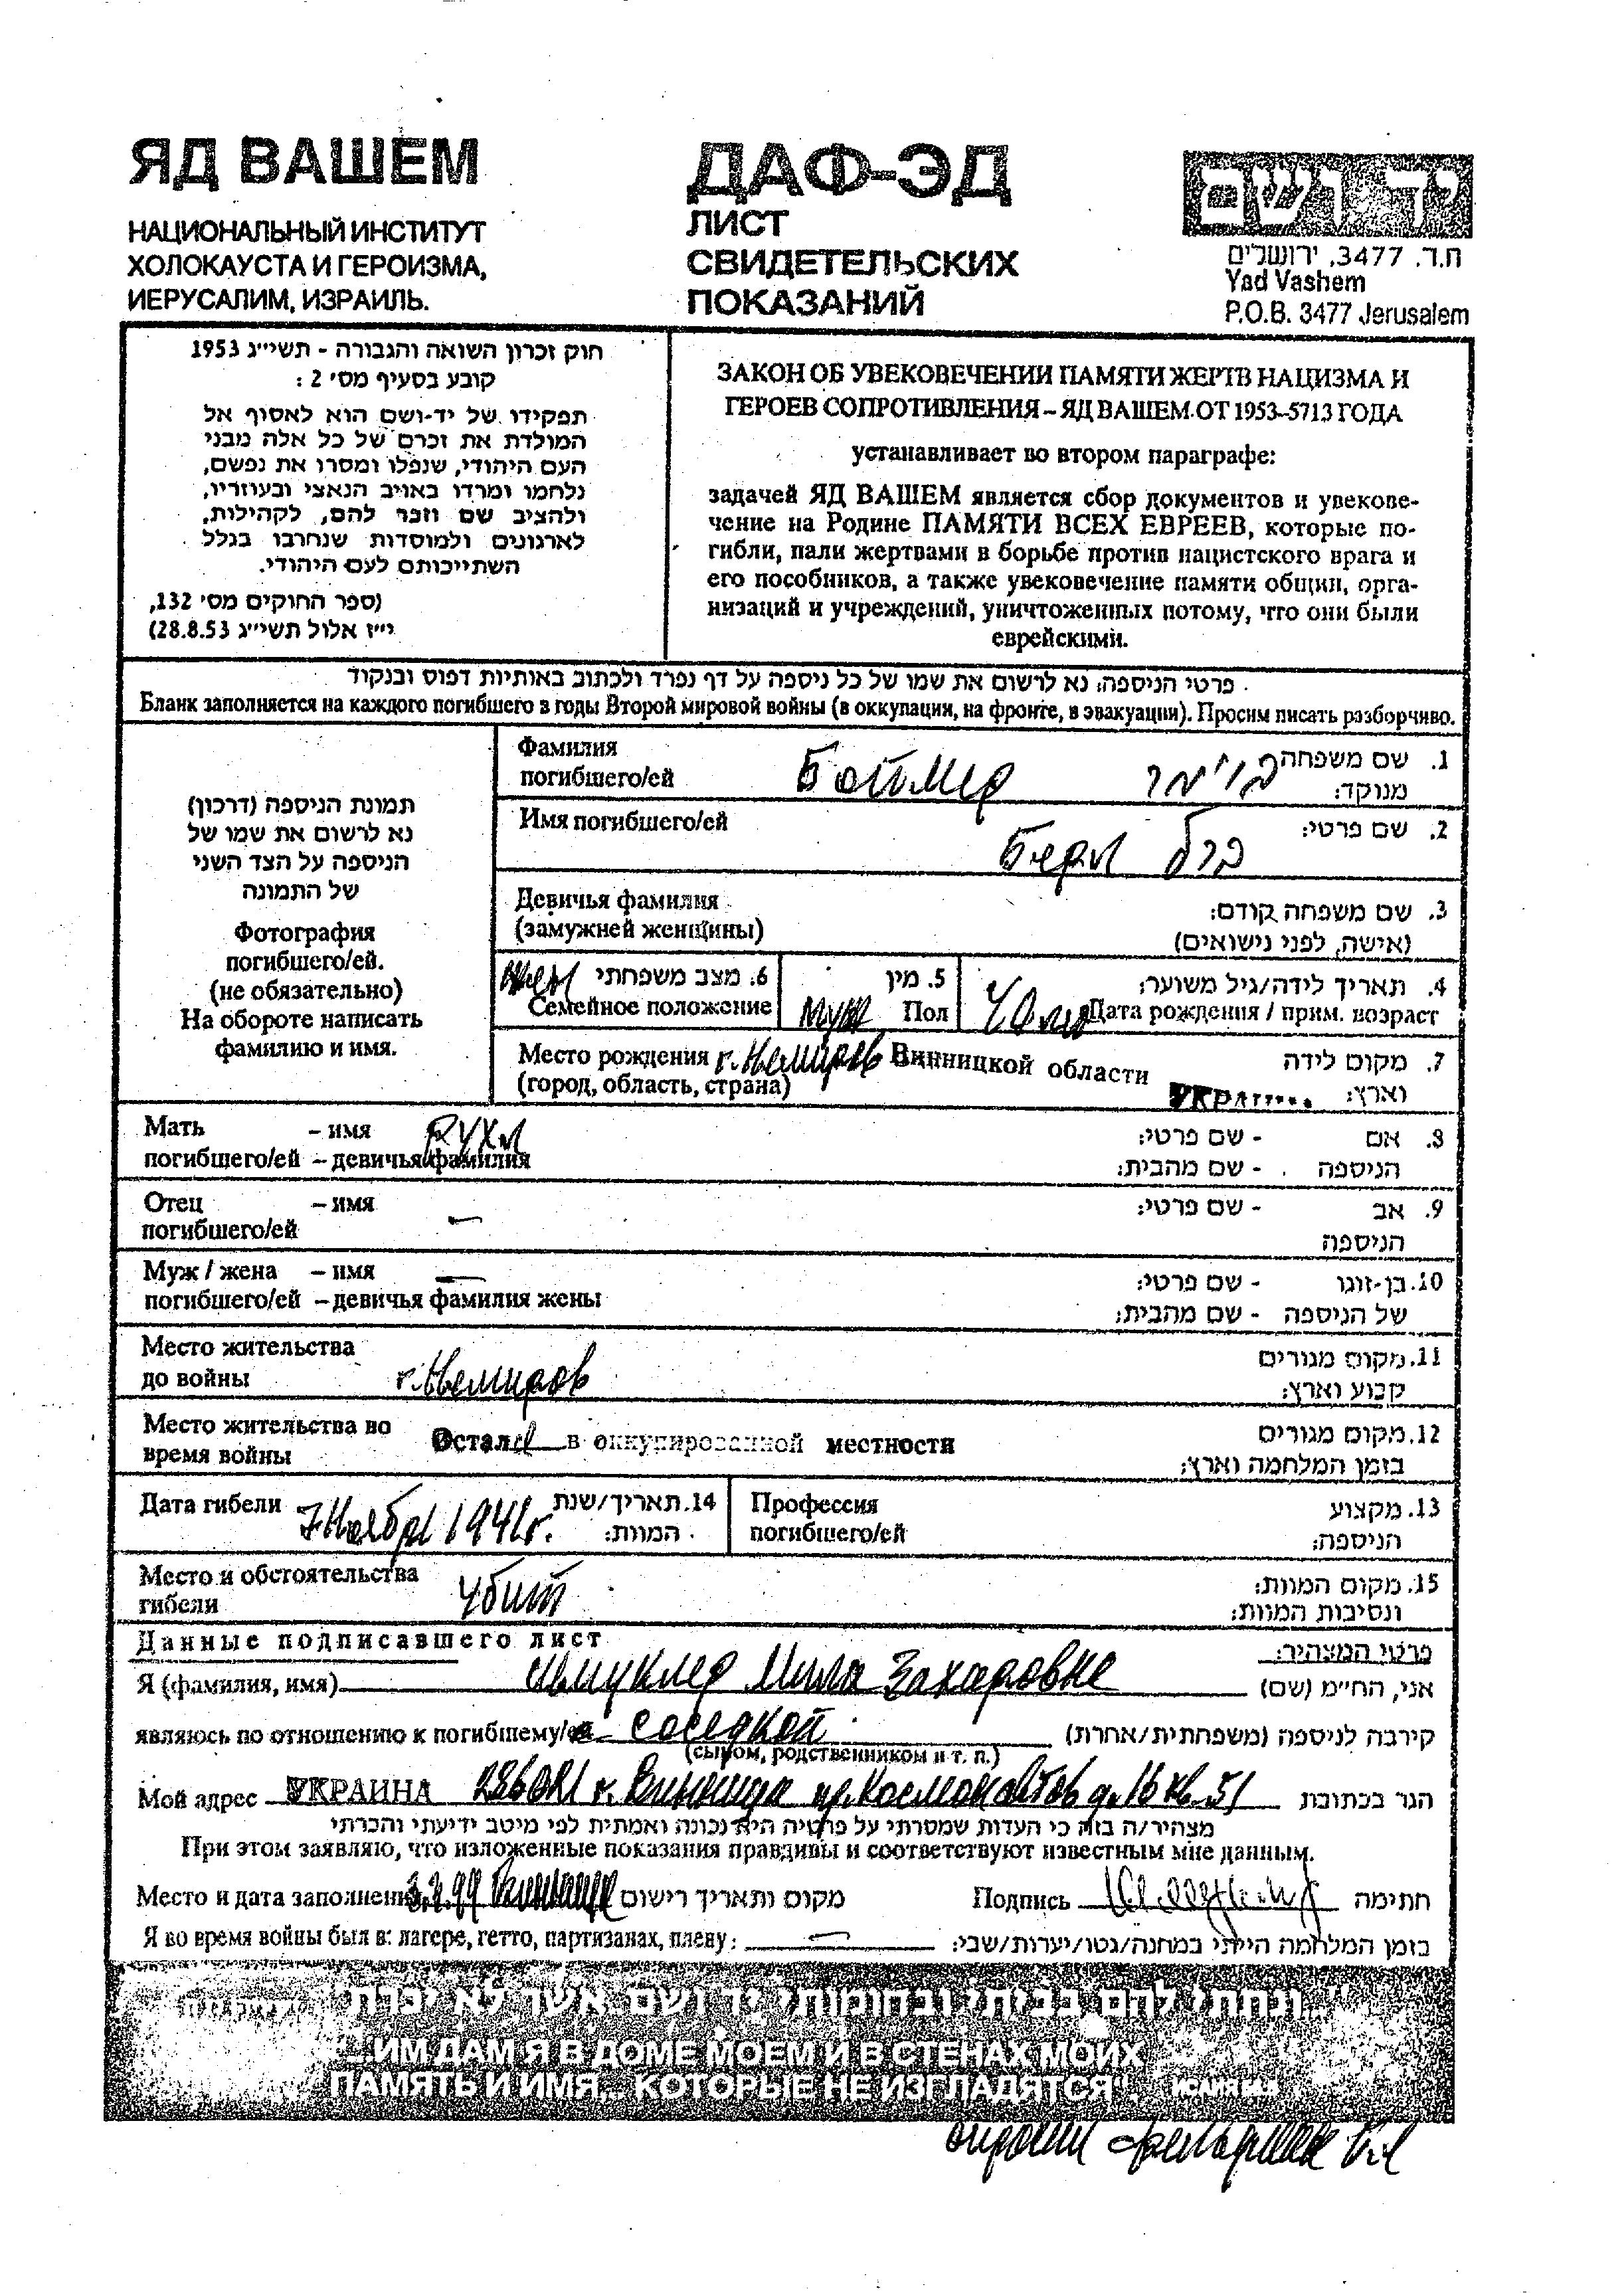 ЯД ВАШЕМ
НАЦИОНАЛЬНЫЙ ИНСТИТУТ
ХОЛОКАУСТА И ГЕРОИЗМА,
ИЕРУСАЛИМ, ИЗРАИЛЬ.
ДАФ-ЭД
ЛИСТ
СВИДЕТЕЛЬСКИХ
ПОКАЗАНИЙ
יד ושם
ת.ד. 3477, ירושלים
Yad Vashem
P.O.B. 3477 Jerusalem
חוק זכרון השואה והגבורה - תשי״ג 1953
קובע בסעיף מס׳ 2 :
תפקידו של יד-ושם הוא לאסוף אל
המולדת את זכרם של כל אלה מבני
העם היהודי, שנפלו ומסרו את נפשם,
נלחמו ומרדו באויב הנאצי ובעוזריו,
ולהציב שם וזכר להם, לקהילות,
לארגונים ולמוסדות שנחרבו בגלל
השתייכותם לעם היהודי.
(ספר החוקים מס׳ 132,
י״ז אלול תשי״ג 28.8.53)
ЗАКОН ОБ УВЕКОВЕЧЕНИИ ПАМЯТИ ЖЕРТВ НАЦИЗМА И
ГЕРОЕВ СОПРОТИВЛЕНИЯ – ЯД ВАШЕМ ОТ 1953-5713 ГОДА
устанавливает во втором параграфе:
задачей ЯД ВАШЕМ является сбор документов и увекове-
чение на Родине ПАМЯТИ ВСЕХ ЕВРЕЕВ, которые по-
гибли, пали жертвами в борьбе против нацистского врага и
его пособников, а также увековечение памяти общин, орга-
низаций и учреждений, уничтоженных потому, что они были
еврейскими.
פרטי הניספה: נא לרשום את שמו של כל ניספה על דף נפרד ולכתוב באותיות דפוס ובנקוד
Бланк заполняется на каждого погибшего в годы Второй мировой войны (в оккупации, на фронте, в эвакуации). Просим писать разборчиво.
תמונת הניספה (דרכון)
נא לרשום את שמו של
הניספה על הצד השני
של התמונה
Фотография
погибшего/ей.
(не обязательно)
На обороте написать
фамилию и имя.
Фамилия
погибшего/ей Боймер בוימר 1. שם משפחה
מנוקד:
Имя погибшего/ей Берл ברל 2. שם פרטי:
Девичья фамилия 3. שם משפחה קודם:
(замужней женщины) (אישה, לפני נישואים)
6. מצב משפחתי 5. מין 4. תאריך לידה/גיל משוער:
Семейное положение муж Пол 40 Дата рождения / прим. возраст
Место рождения г. Немиров Винницкой области 7. מקום לידה
(город, область, страна) וארץ:
Мать – имя Рухл 8. אם - שם פרטי:
погибшего/ей – девичья фамилия הניספה - שם מהבית:
Отец – имя — 9. אב - שם פרטי:
погибшего/ей הניספה
Муж / жена – имя — 10. בן-זוגו - שם פרטי:
погибшего/ей – девичья фамилия жены של הניספה - שם מהבית:
Место жительства 11. מקום מגורים
до войны г. Немиров קבוע וארץ:
Место жительства во 12. מקום מגורים
время войны Остал в оккупированной местности בזמן המלחמה וארץ:
Дата гибели 7 Ноября 1941г. 14. תאריך/שנת Профессия 13. מקצוע
המוות: погибшего/ей הניספה:
Место и обстоятельства 15. מקום המוות:
гибели Убит ונסיבות המוות:
Данные подписавшего лист פרטי המצהיר:
Я (фамилия, имя) Мила Захаровна אני, החי״מ (שם)
являюсь по отношению к погибшему/ей соседкой קירבה לניספה (משפחתית/אחרת)
(сыном, родственником и т. п.)
Мой адрес УКРАИНА 286021 г. Винница пр. Космонавтов д. 16 кв. 51 הגר בכתובת
מצהיר/ה בזה כי העדות שמסרתי על פרטיה היא נכונה ואמתית לפי מיטב ידיעתי והכרתי
При этом заявляю, что изложенные показания правдивы и соответствуют известным мне данным.
Место и дата заполнения Винница מקום ותאריך רישום Подпись חתימה
Я во время войны был в: лагере, гетто, партизанах, плену: — בזמן המלחמה הייתי במחנה/גטו/יערות/שבי:
"...ונתתי להם בביתי ובחומותי יד ושם אשר לא יכרת"
"ИМ ДАМ Я В ДОМЕ МОЕМ И В СТЕНАХ МОИХ
ПАМЯТЬ И ИМЯ... КОТОРЫЕ НЕ ИЗГЛАДЯТСЯ"